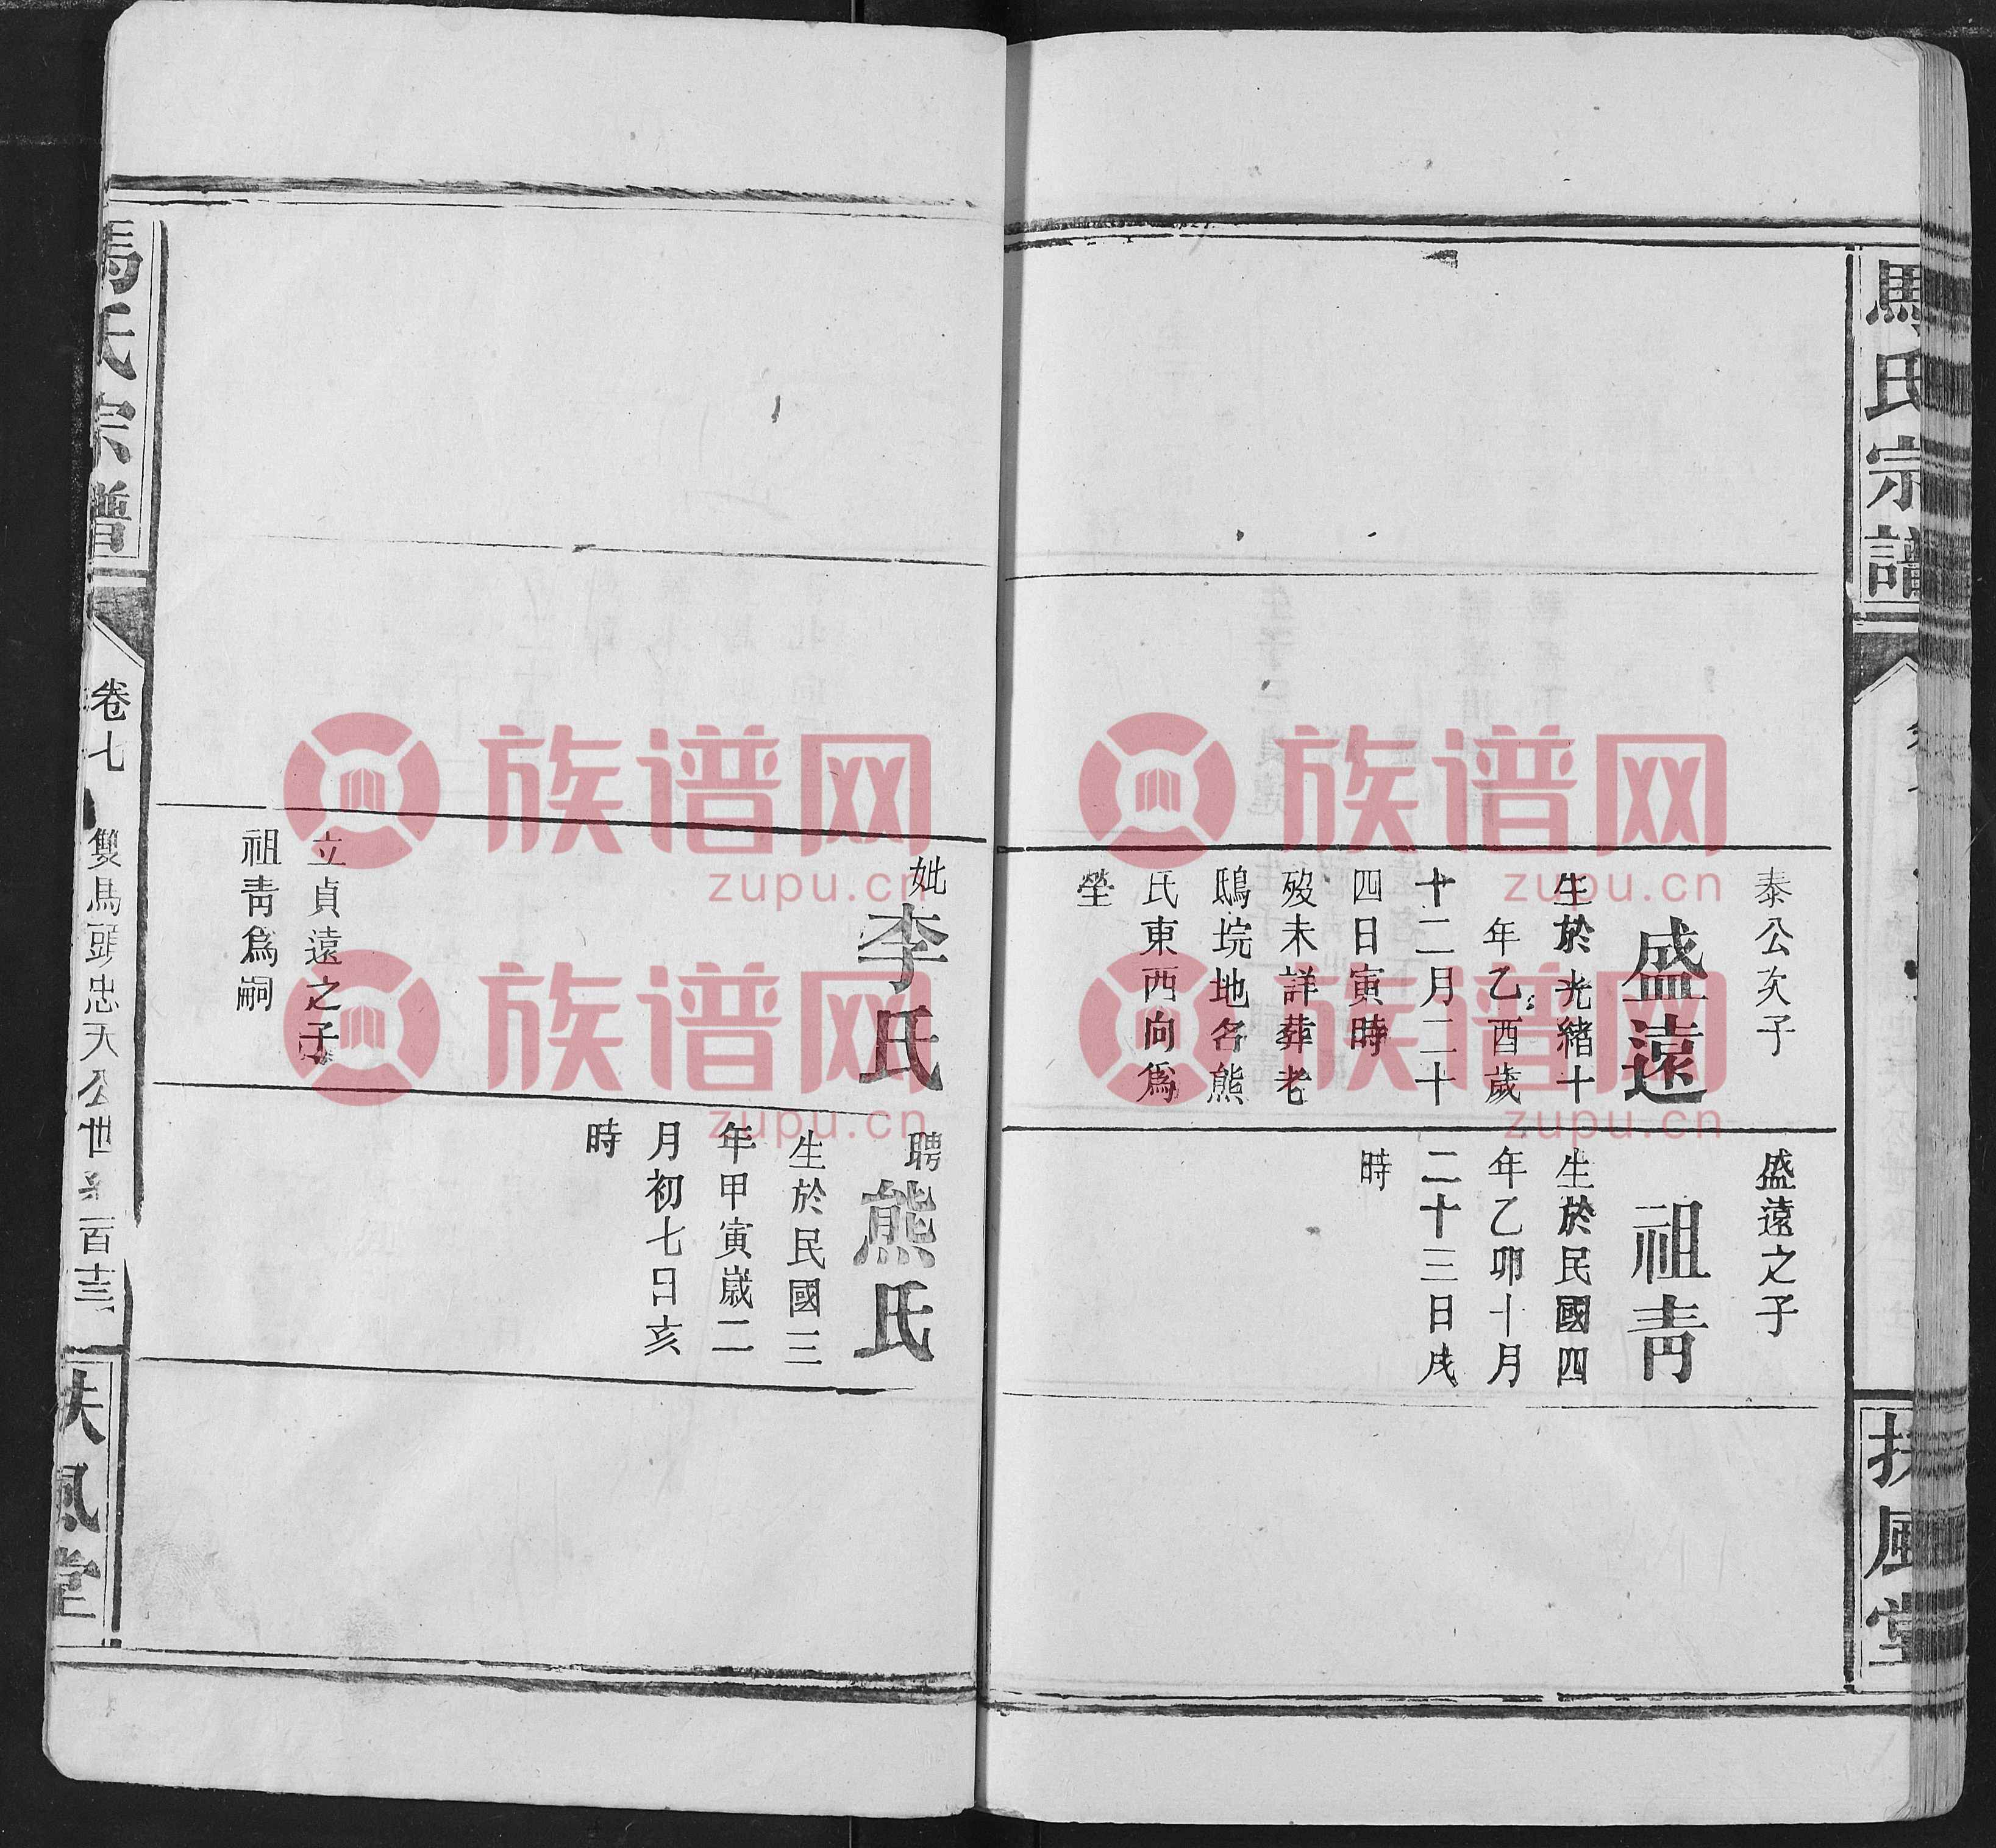 馬氏宗譜
扶風堂
泰公次子
盛遠
生於光緒十
年乙酉歲
十二月二十
四日寅時
歿未詳葬老
鴟垸地名熊
氏東西向爲
塋
盛遠之子
祖青
生於民國四
年乙卯十月
二十三日戌
時
妣李氏
立貞遠之子
祖青爲嗣
聘熊氏
生於民國三
年甲寅歲二
月初七日亥
時
馬氏宗譜
卷七
雙馬頭忠天公世系
百十三
扶風堂
族谱网
zupu.cn
族谱网
zupu.cn
族谱网
zupu.cn
族谱网
zupu.cn